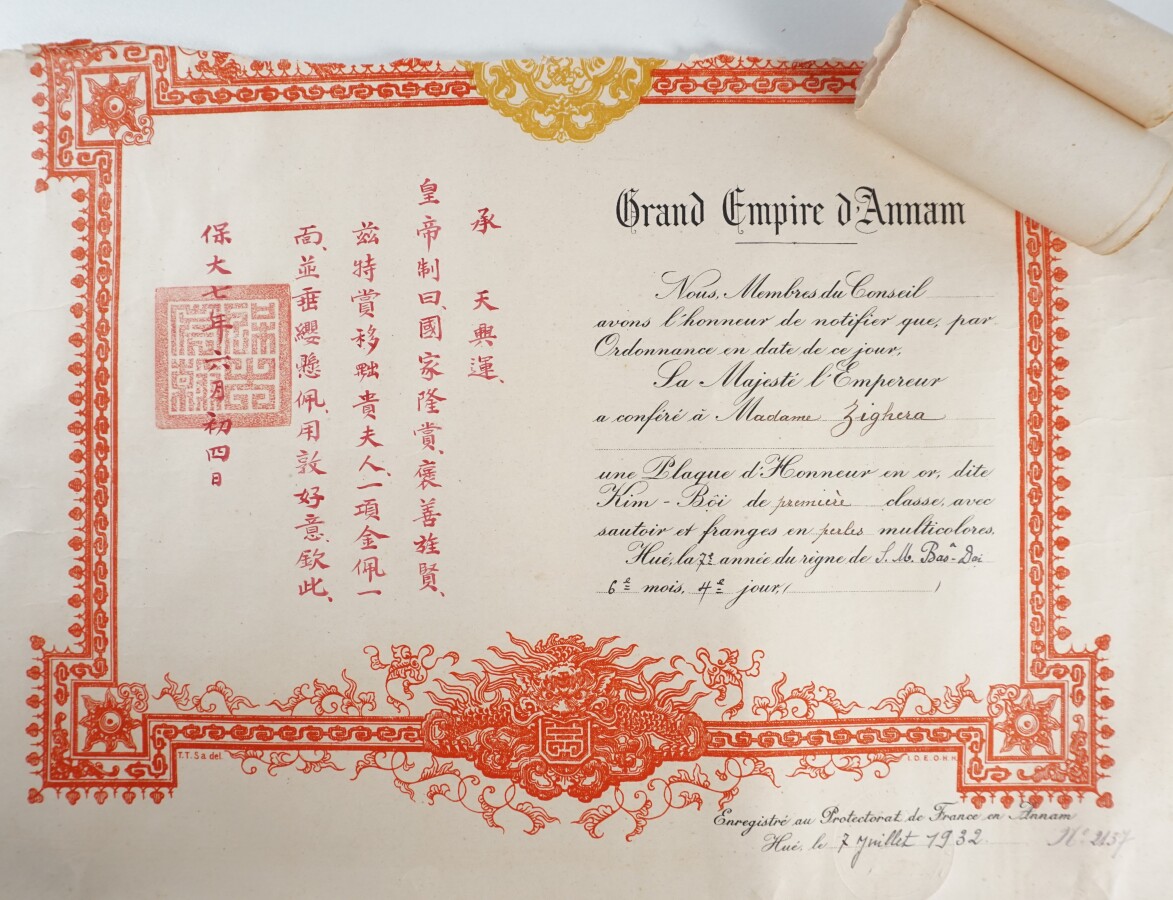 承天興運、
皇帝制曰、國家隆賞、褒善旌賢、
茲特賞移黜貴夫人、一項金佩一
面、並垂纓懸佩、用敦好意、欽此、
保大七年六月初四日
Grand Empire d'Annam
Nous, Membres du Conseil
avons l'honneur de notifier que, par
Ordonnance en date de ce jour,
Sa Majesté l'Empereur
a conféré à Madame Zighera
une Plaque d'Honneur en or, dite
Kim-Bội de première classe, avec
sautoir et franges en perles multicolores.
Hué, la 7e année du règne de S. M. Bao-Dai
6e mois, 4e jour, ( )
T.T.Sa del.
I.D.E.O.H.H.
Enregistré au Protectorat de France en Annam
Hué, le 7 Juillet 1932 No 2157